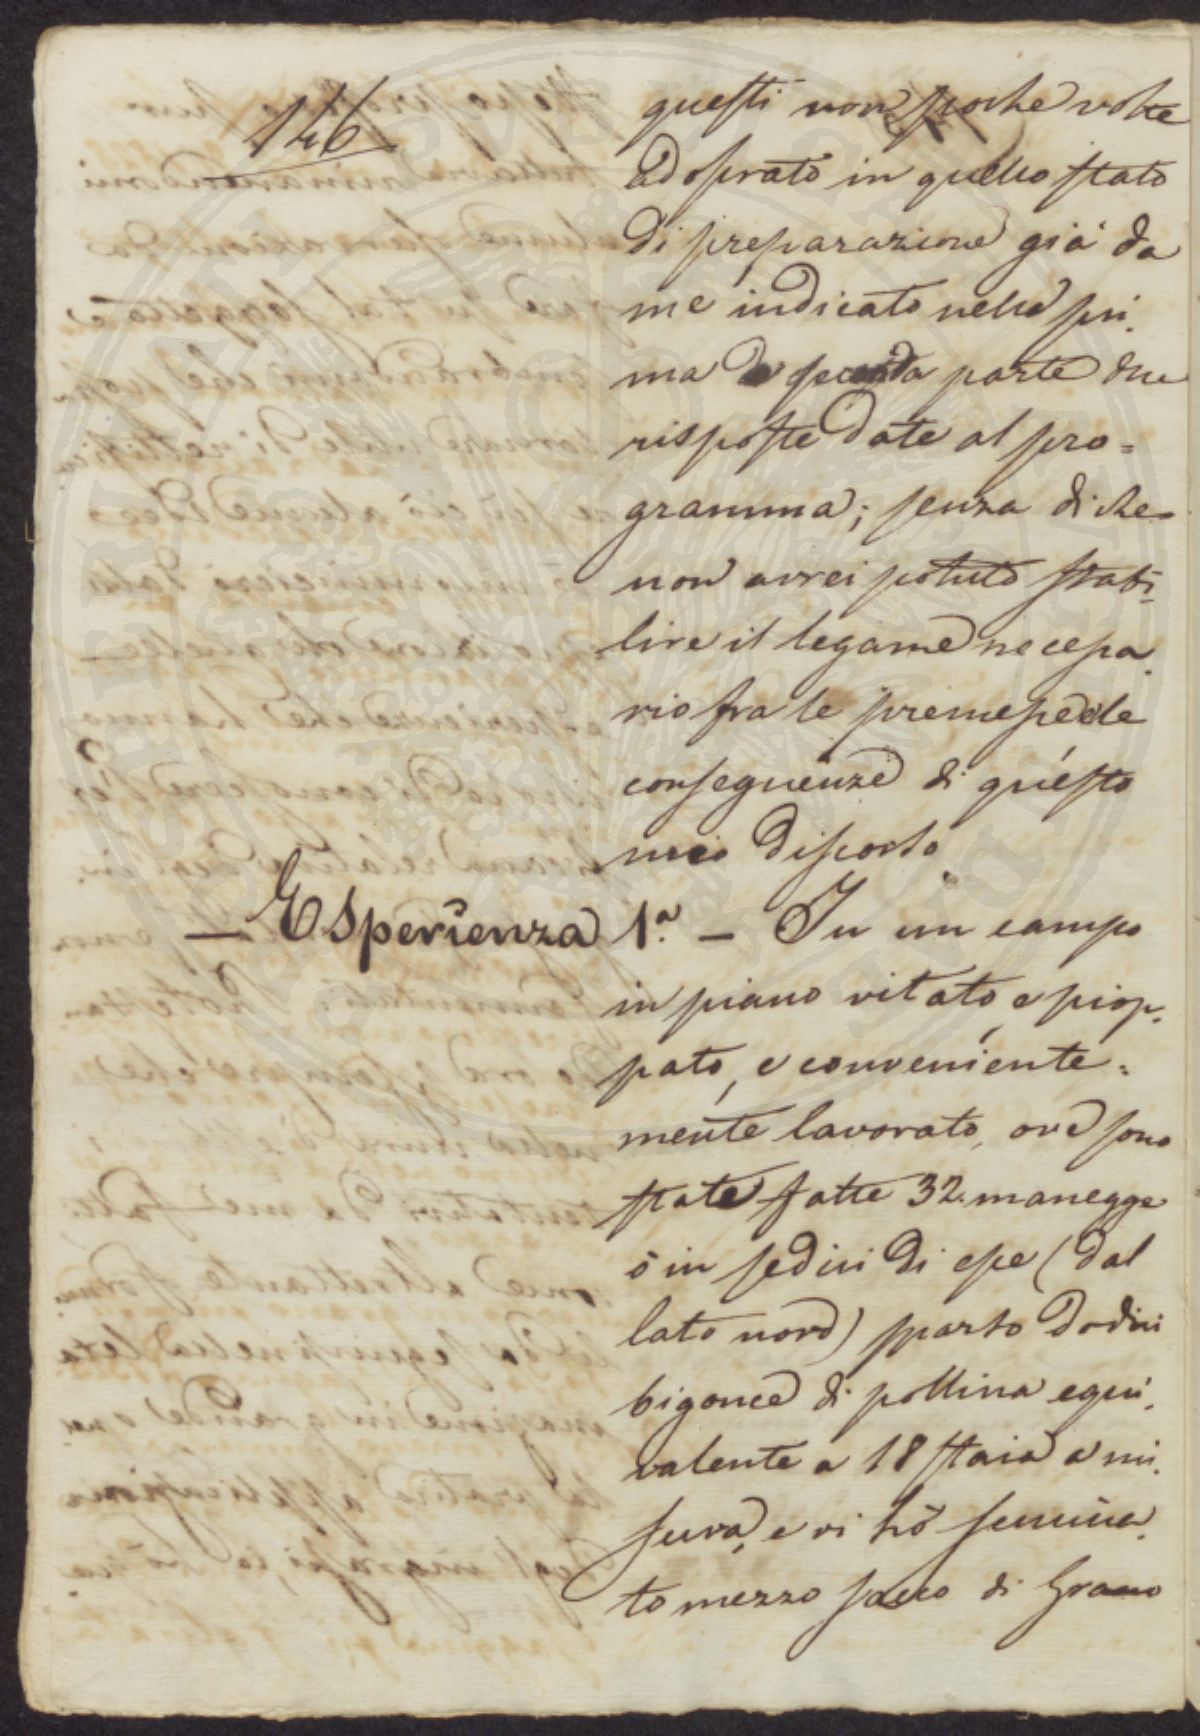 146
questi non poche volte
adoprato in quello stato
di preparazione già da
me indicato nella pri-
ma e seconda parte due
risposte date al pro=
gramma; senza di che
non avrei potuto stabi-
lire il legame necessa-
rio fra le premesse e le
conseguenze di questo
mio discorso
— Esperienza 1.ª — In un campo
in piano vitato, e piop-
pato, e conveniente=
mente lavorato, ove sono
state fatte 32. manegge
ò in sedici di esse (dal
lato nord) sparso dodici
bigonce di pollina equi-
valente a 18 staia a mi-
sura, e vi hò semina-
to mezzo sacco di Grano